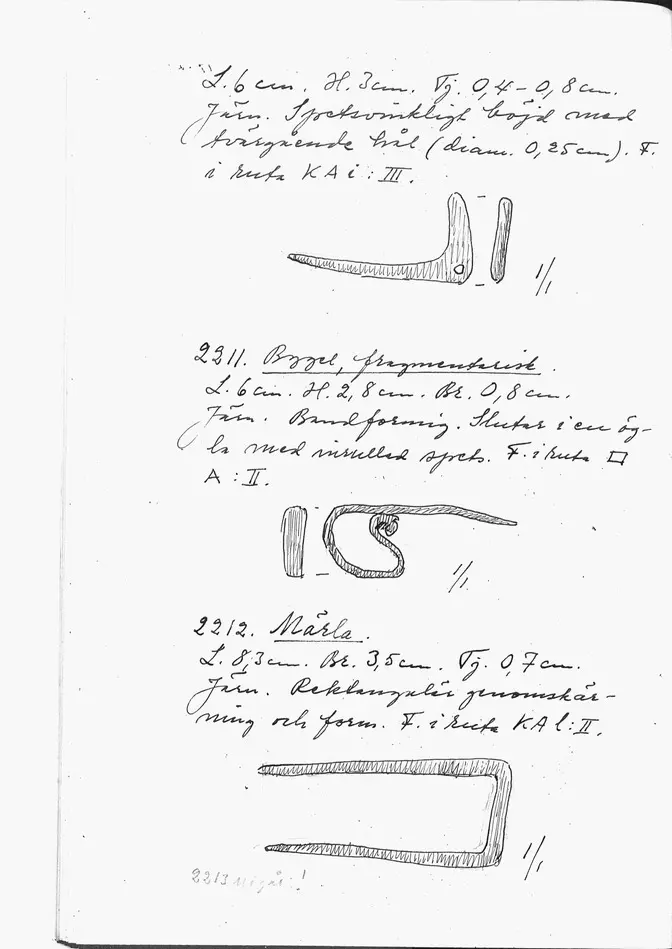 L. 6 cm. H. 3 cm. Tj. 0,4 – 0,8 cm.
Järn. Spetsvinkligt böjd med
tvärgående hål (diam. 0,25 cm). F.
i ruta KA i : III.
1/1
2211. Bygel, fragmentarisk.
L. 6 cm. H. 2,8 cm. Br. 0,8 cm.
Järn. Bandformig. Slutar i en ög-
la med inrullad spets. F. i ruta □
A : II.
1/1
2212. Märla.
L. 8,3 cm. Br. 3,5 cm. Tj. 0,7 cm.
Järn. Rektangulär genomskär-
ning och form. F. i ruta KA l : II.
1/1
2213 utgår!